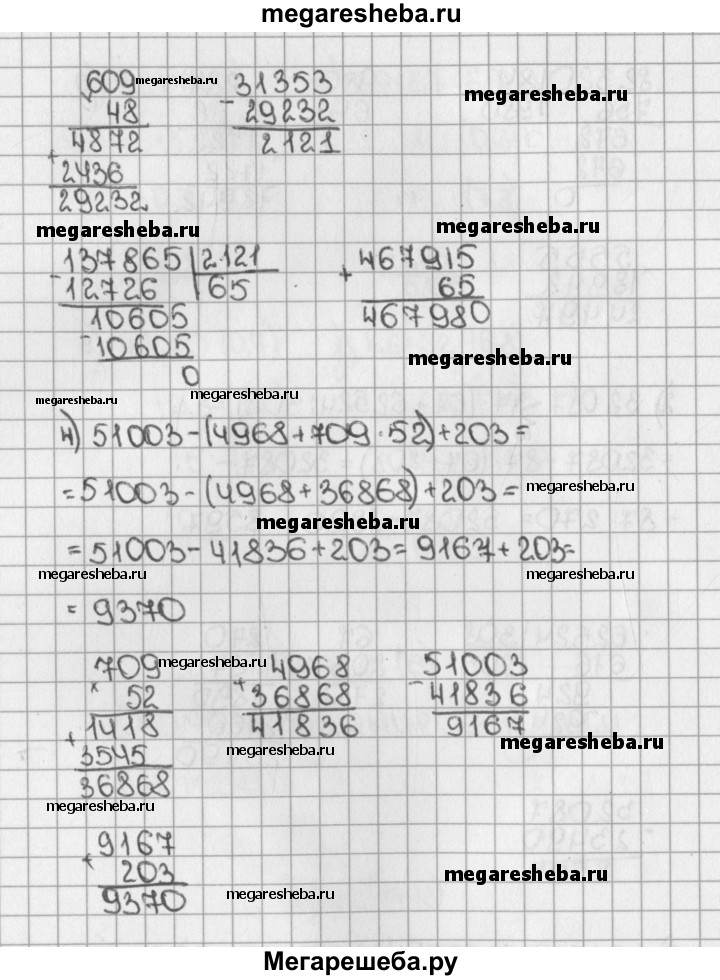 megaresheba.ru
609 megaresheba.ru - 31353 megaresheba.ru
48 29232
4872 2121
+
2436
29232
megaresheba.ru megaresheba.ru
- 137865 | 2121 + 467915
12726 | 65 65
10605 467980
- 10605 megaresheba.ru
0 megaresheba.ru
megaresheba.ru
4) 51003-(4968+709·52)+203=
=51003-(4968+36868)+203= megaresheba.ru
megaresheba.ru
=51003-41836+203=9167+203=
megaresheba.ru megaresheba.ru
= 9370
709 megaresheba.ru + 4968 - 51003
x 52 36868 41836
+ 1418 41836 9167
3545 megaresheba.ru megaresheba.ru
36868
megaresheba.ru
+ 9167
203 megaresheba.ru
9370 megaresheba.ru
Мегарешеба.ру